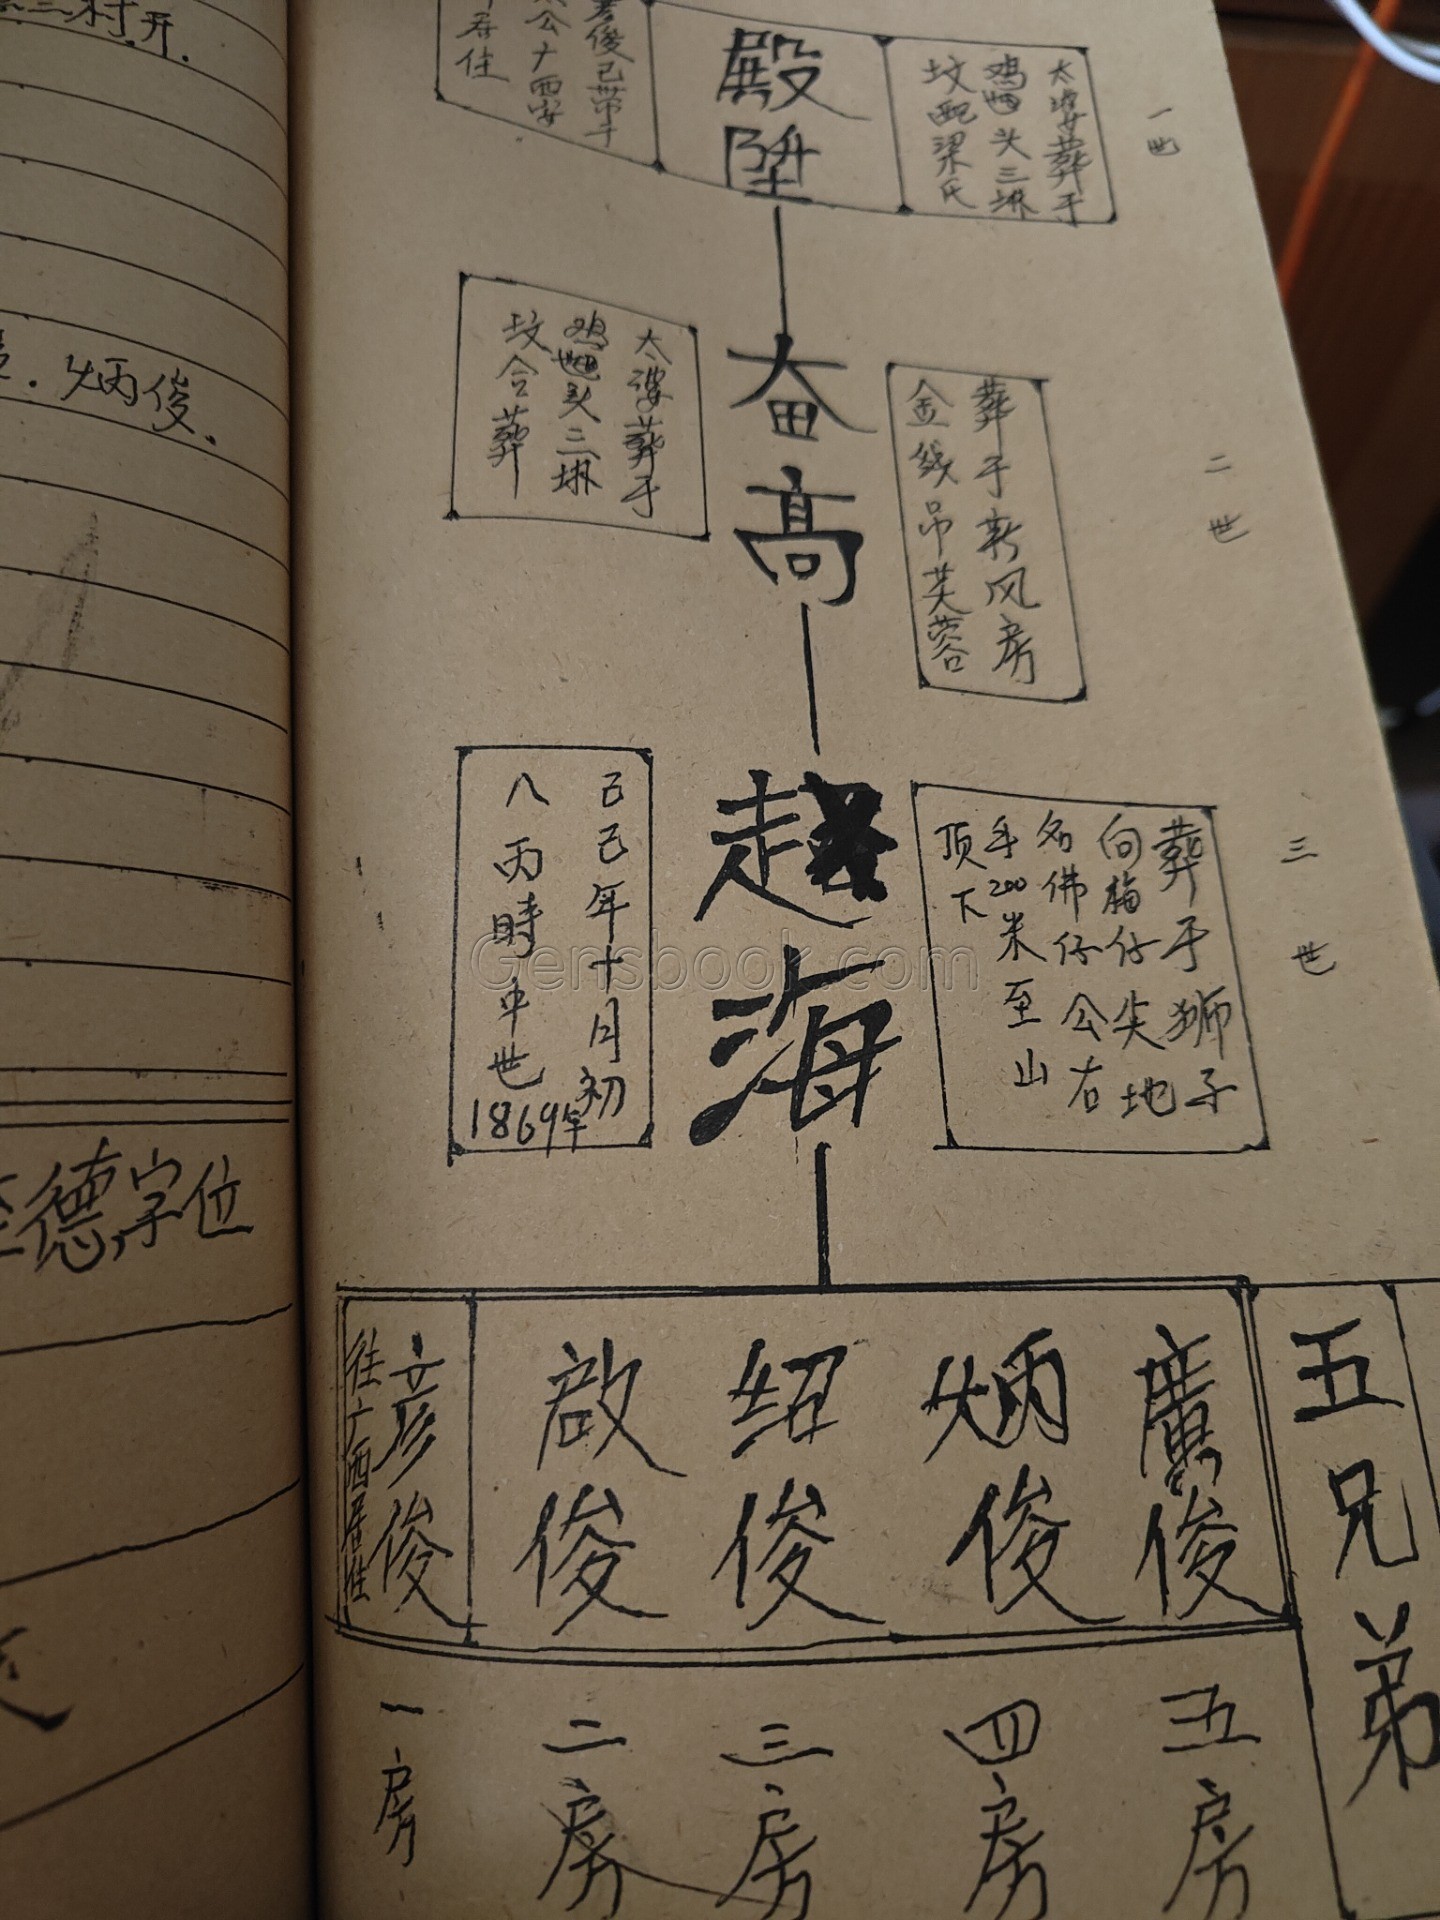 村开.
炳俊.
德字位
太婆葬于
鸡乸头三垅
坟配梁氏
殿
陞
彦俊己带
公广西安
居住
一世
葬于新风房
金线吊芙蓉
奋
高
太婆葬于
鸡乸头三垅
坟合葬
二世
葬于狮子
向梅仔尖地
名佛仔公右
手200米至山
顶下
趂
海
己己年十月初
八丙時中世
1869年
三世
Gensbook.com
五兄弟
廣俊
炳俊
绍俊
啟俊
彦俊
往广西居住
五房
四房
三房
二房
一房